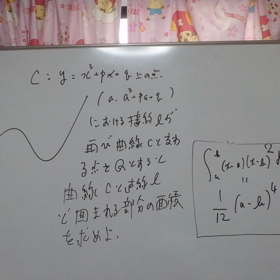 C : y = x³+px+q 上の点
(a, a³+pa+q)
における接線lが
再び曲線Cと交わ
る点をQとすると
曲線Cと接線l
で囲まれる部分の面積
を求めよ.
∫ₐᵇ (x-a)(x-b)² d
"
1/12 (a-b)⁴